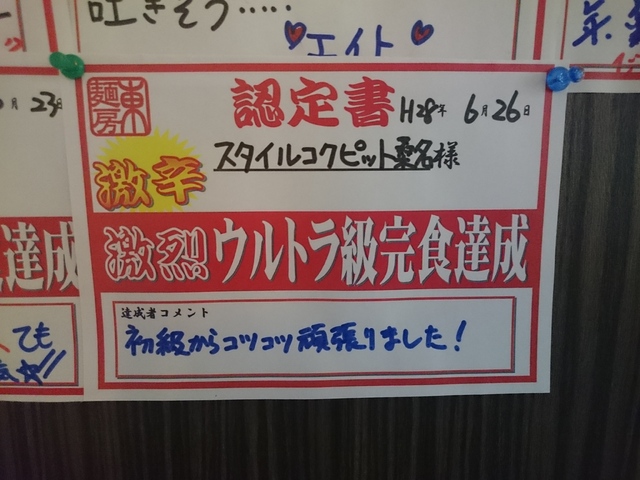 吐きそう.....
エイト
月 23日
東麺房
認定書
H28年 6月26日
激辛
スタイルコクピット桑名様
激烈!! ウルトラ級完食達成
達成者コメント
初級からコツコツ頑張りました!
達成
ても